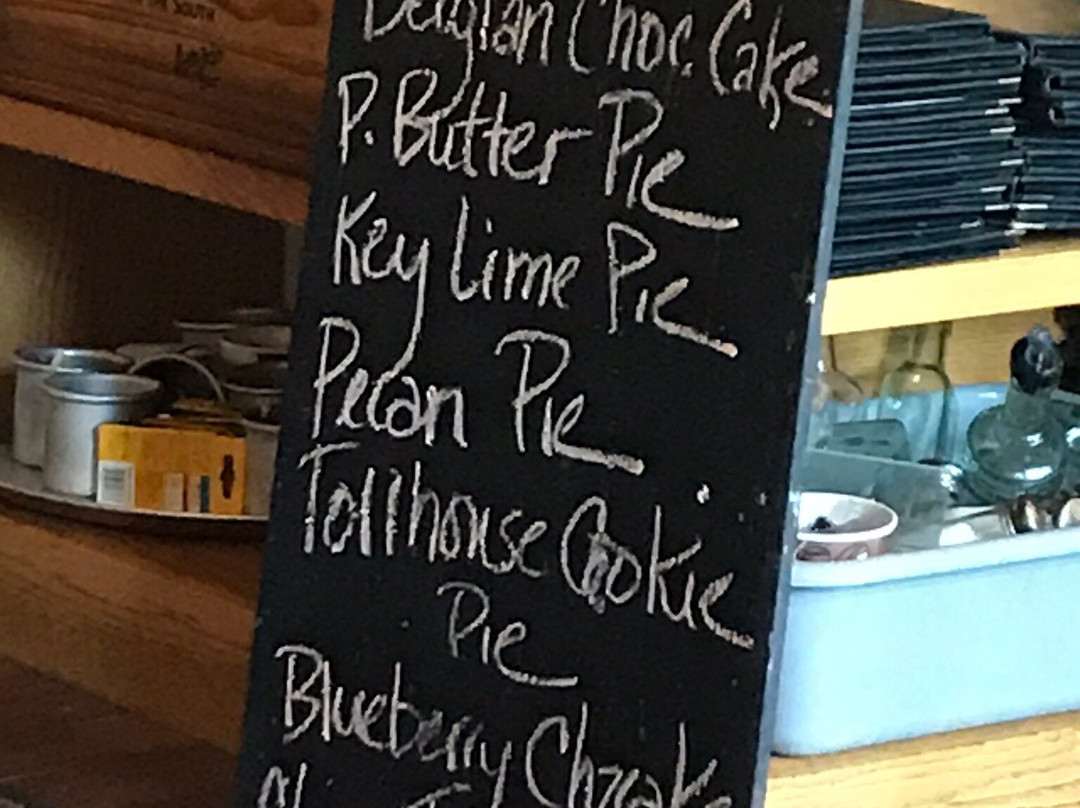 THE SOUTH
Belgian Choc. Cake
P. Butter Pie
Key Lime Pie
Pecan Pie
Tollhouse Cookie
Pie
Blueberry Chzcake